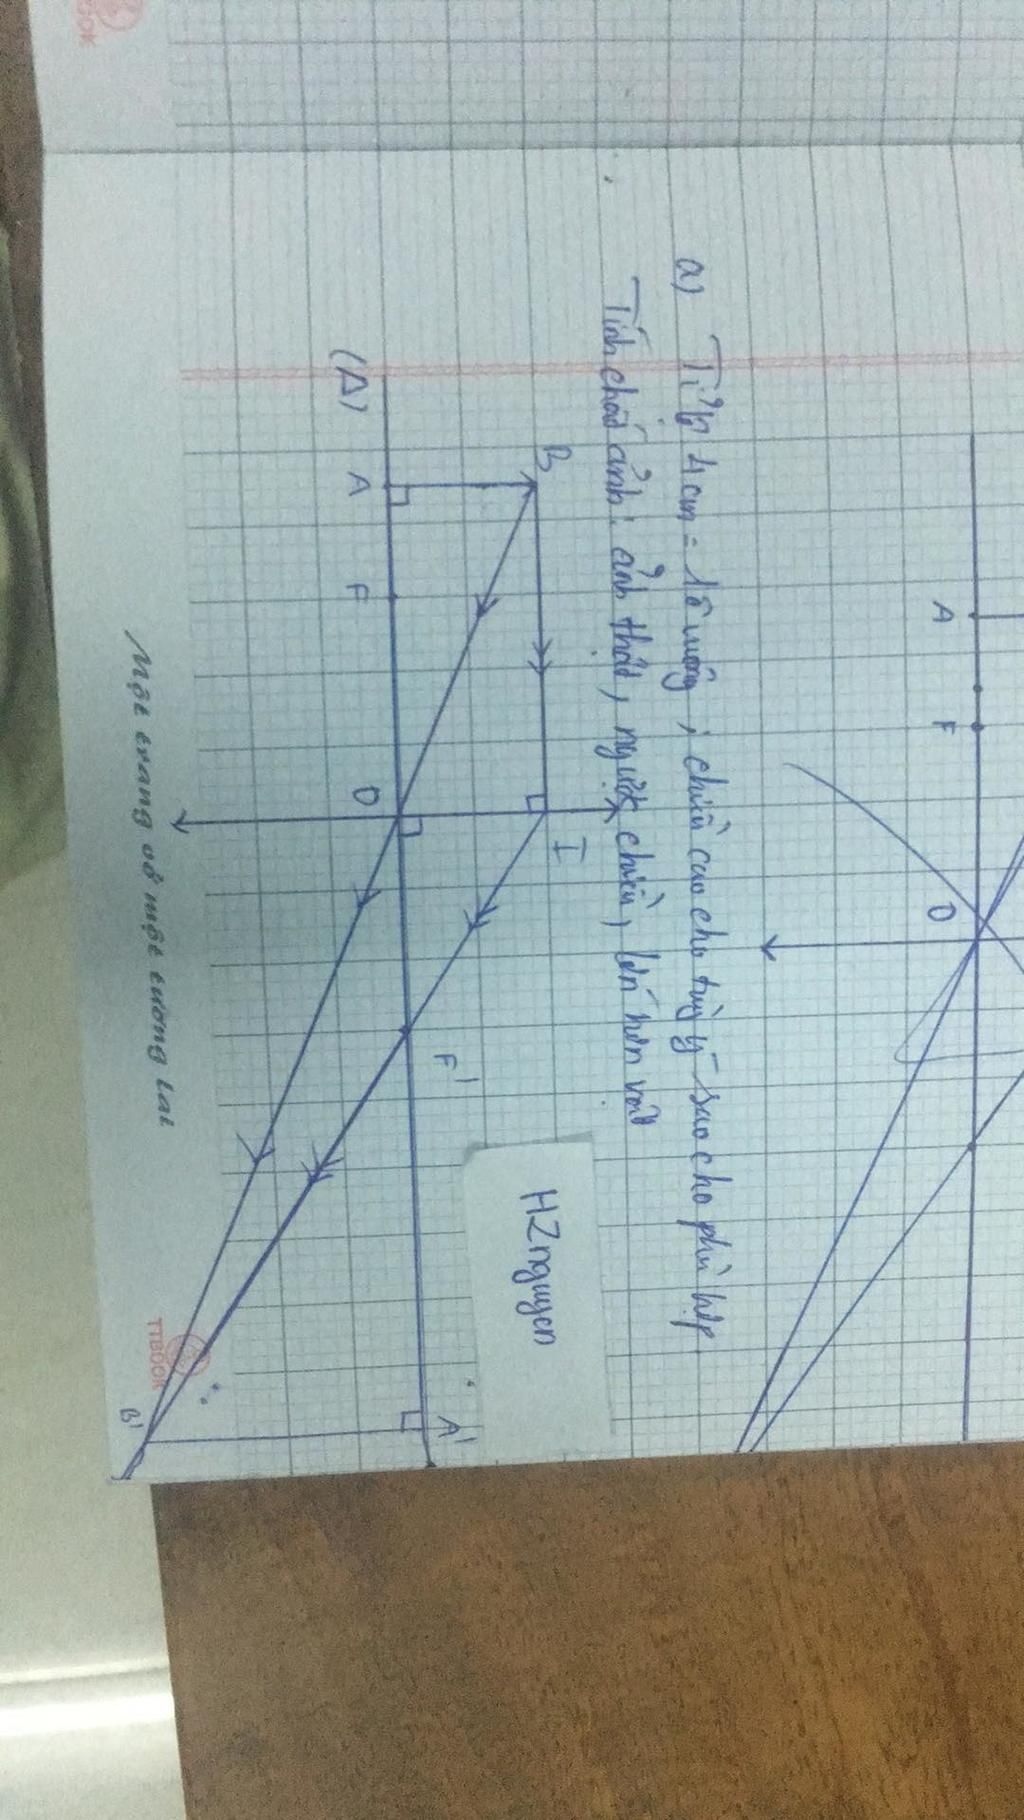 A
F
O
a) Tỉ lệ 4cm = 1 ô vuông, chiều cao cho tùy ý sao cho phù hợp
Tính chất ảnh: ảnh thật, ngược chiều, lớn hơn vật
HZnguyen
B
I
F'
A'
(Δ)
A
F
O
B'
Một trang vở một tương lai
TTBOOK